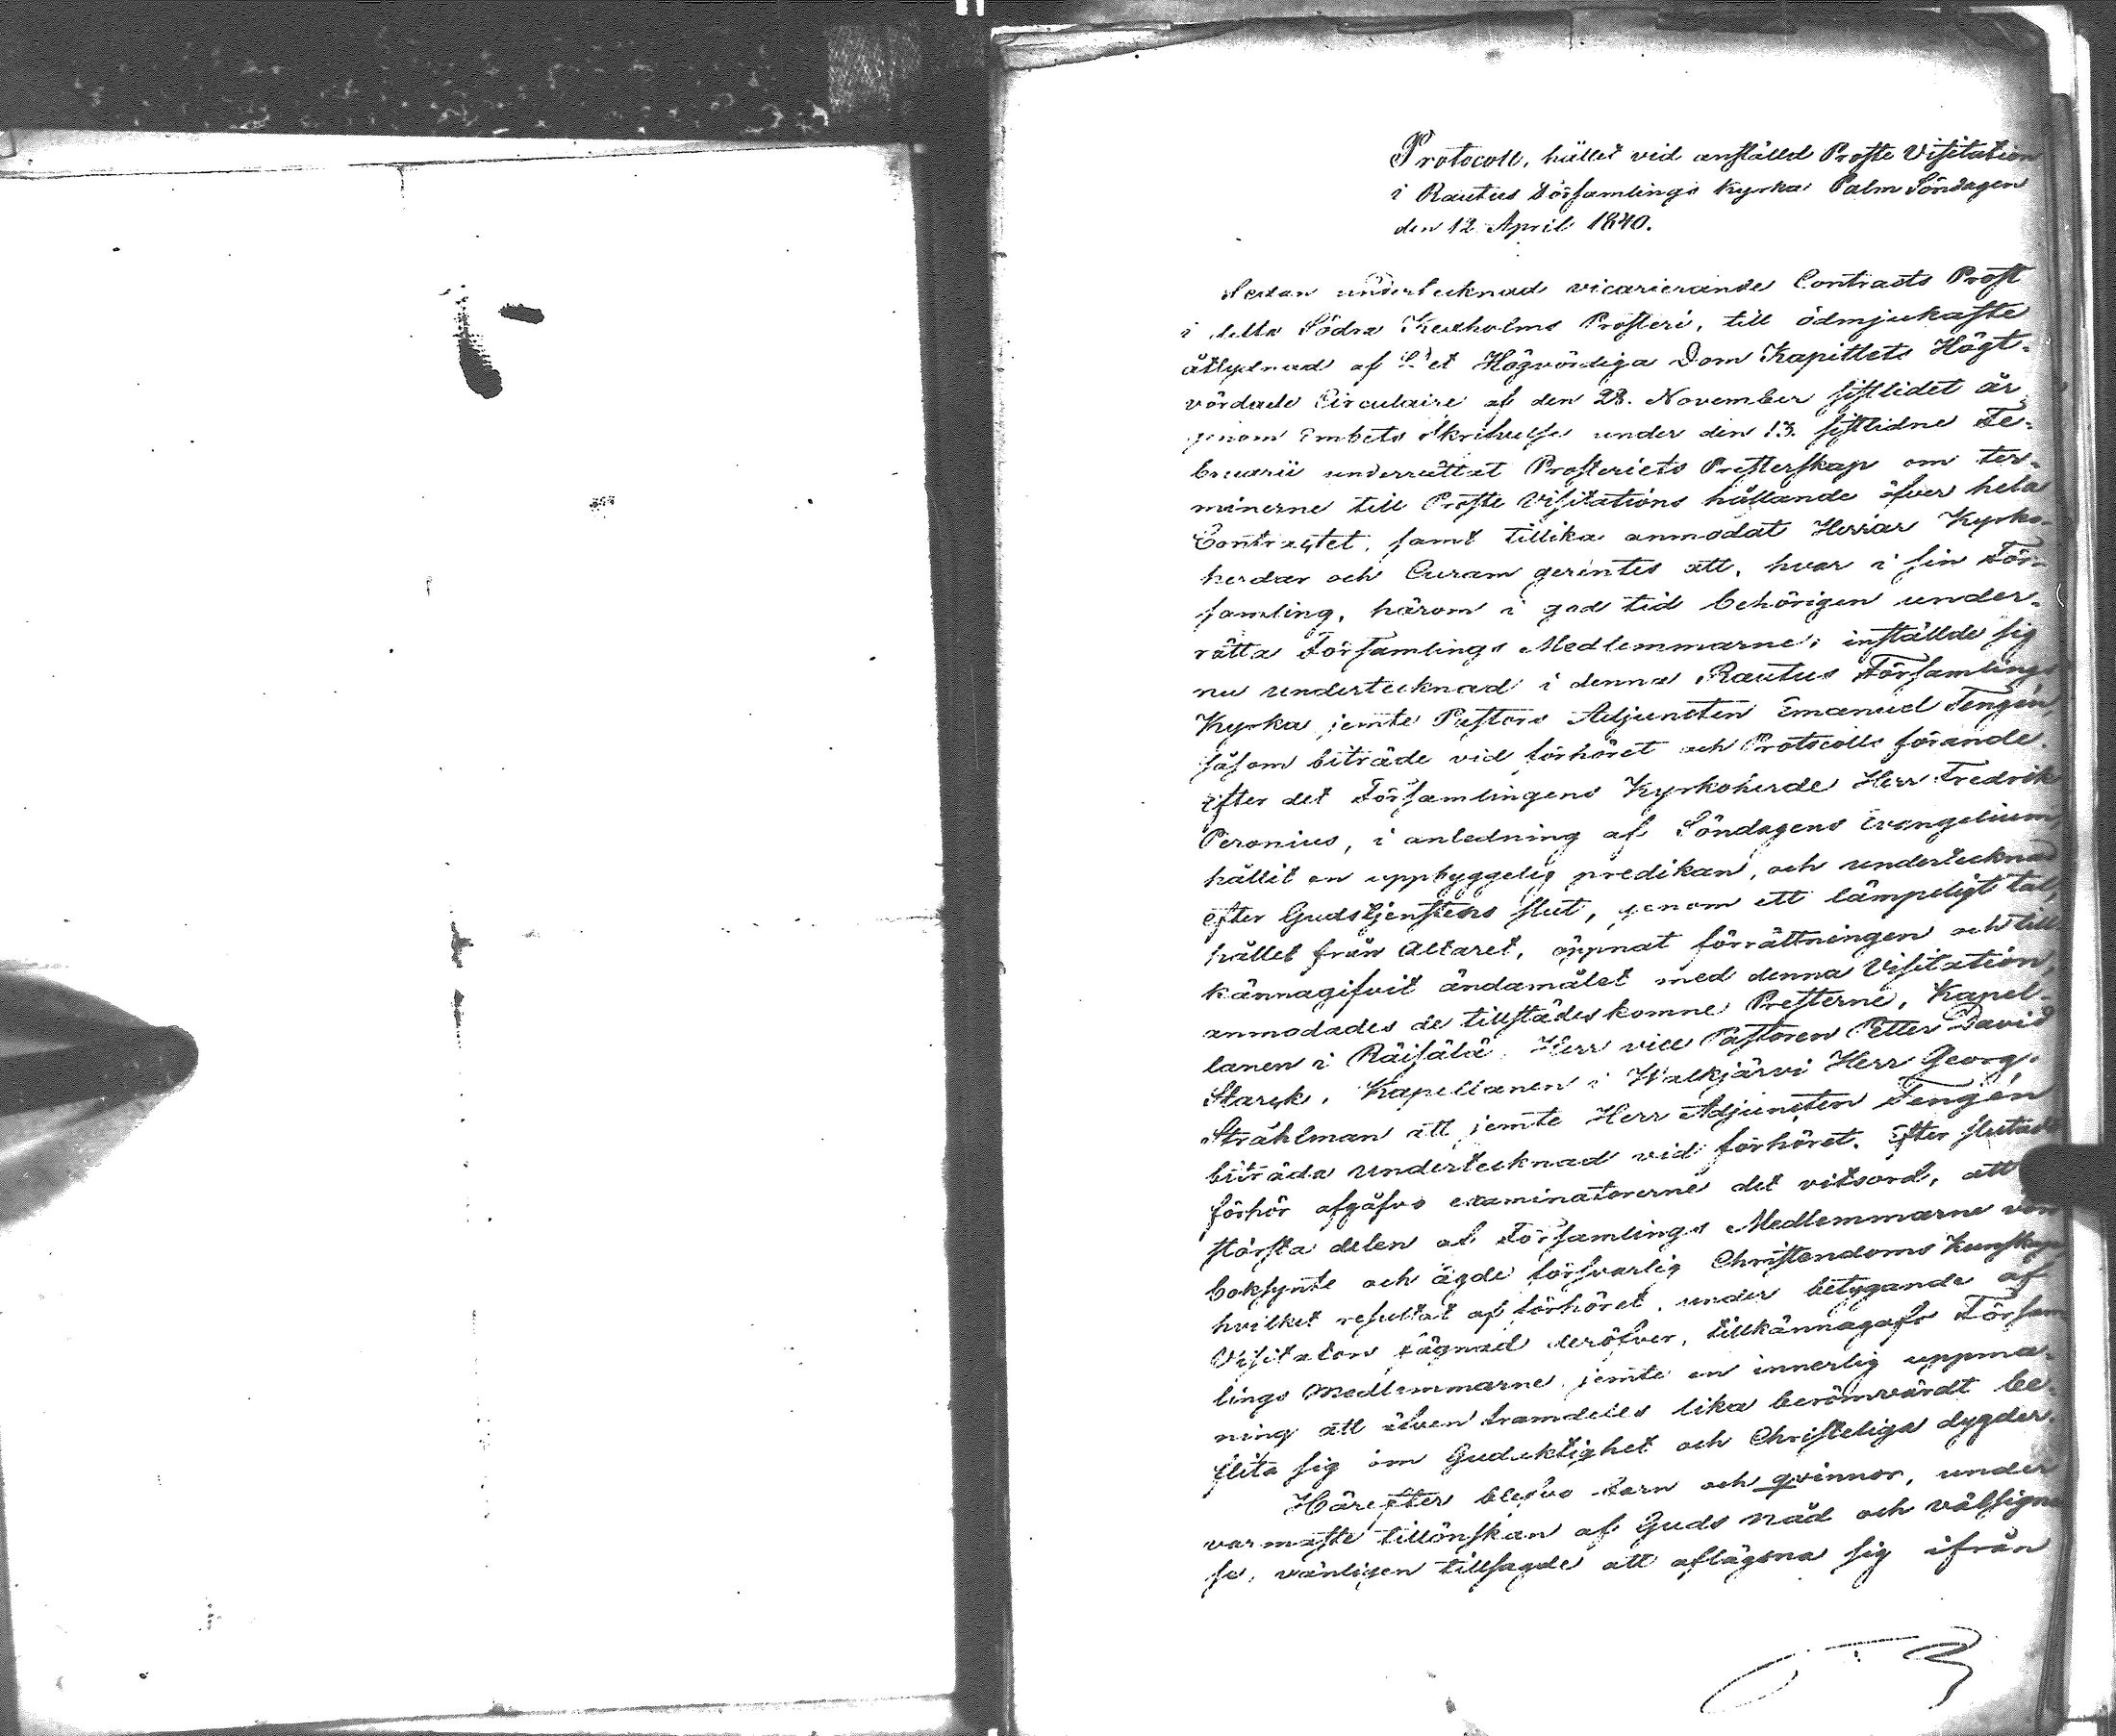 Protocoll, hållet vid anställd Proste Visitation
i Rautus Församlings Kyrka Palm Söndagen
den 12 April 1840.
Sedan undertecknad vicarierande Contracts Prost
i detta Södra Kexholms Prosteri, till ödmjukaste
åtlydnad af Det Högvördiga Dom Kapitlets Högt-
vördade Circulaire af den 28. November sistlidet år
genom Embets Skrifvelse under den 13. sistlidne Fe-
bruarii underrättat Prosteriets Presterskap om ter-
minerne till Proste Visitations hållande öfver hela
Contractet, samt tillika anmodat Herrar Kyrko-
herdar och Curam gerentes att, hvar i sin För-
samling, härom i god tid behörigen under-
rätta Församlings Medlemmarne; inställde sig
nu undertecknad i denna Rautus Församlings
Kyrka jemte Pastors Adjuncten Emanuel Tengén,
såsom biträde vid förhöret och Protocolls förande.
Efter det Församlingens Kyrkoherde Herr Fredrik
Peronius, i anledning af Söndagens Evangelium,
hållit en uppbyggelig predikan, och undertecknad
efter Gudstjenstens slut, genom ett lämpeligt tal,
hållet från Altaret, öppnat förrättningen och till-
kännagifvit ändamålet med denna Visitation,
anmodades de tillstädeskomne Presterne, Kapel-
lanen i Räisälä Herr vice Pastoren Petter David
Starck, Kapellanen i Walkjärvi Herr Georg
Stråhlman att jemte Herr Adjuncten Tengén
biträda undertecknad vid förhöret. Efter slutadt
förhör afgåfvo examinatorerne det vitsord, att
största delen af Församlings Medlemmarne voro
boksynte och ägde försvarlig Christendoms Kunskap
hvilket resultat af förhöret, under betygande af
Visitators fägnad deröfver, tillkännagafs Försam-
lings Medlemmarne jemte en innerlig uppma-
ning att äfven framdeles lika berömvärdt be-
flita sig om Gudaktighet och Christeliga dygder.
Härefter blefvo barn och qvinnor, under
varmaste tillönskan af Guds nåd och välsigne
se, vänligen tillsagde att aflägsna sig ifrån